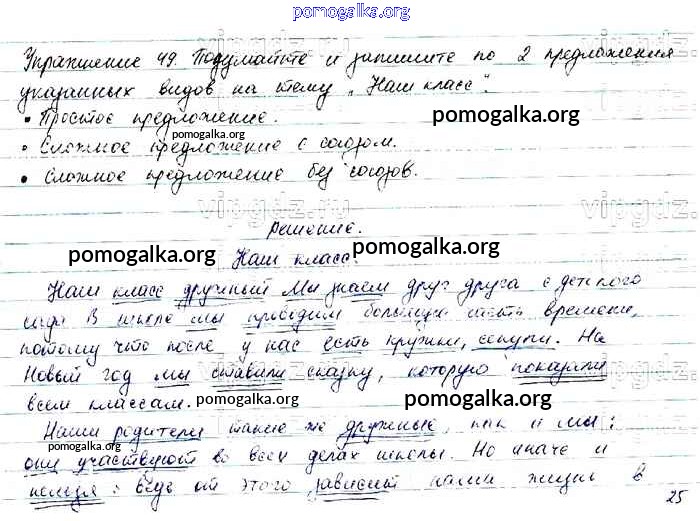 pomogalka.org
Упражнение 49. Подумайте и запишите по 2 предложения
указанных видов на тему „Наш класс".
• Простое предложение.
pomogalka.org
pomogalka.org
• Сложное предложение с союзом.
• Сложное предложение без союзов.
pomogalka.org
vipgdz.ru
vipgdz.ru
Решение.
pomogalka.org
pomogalka.org
Наш класс.
Наш класс дружный. Мы знаем друг друга с детского
сада. В школе мы проводим большую часть времени,
потому что после у нас есть кружки, секции. На
Новый год мы ставили сказку, которую показали
всем классам.
pomogalka.org
pomogalka.org
Наши родители такие же дружные, как и мы:
они участвуют во всех делах школы. Но иначе и
pomogalka.org
vipgdz.ru
нельзя: ведь от этого зависит наша жизнь в
25